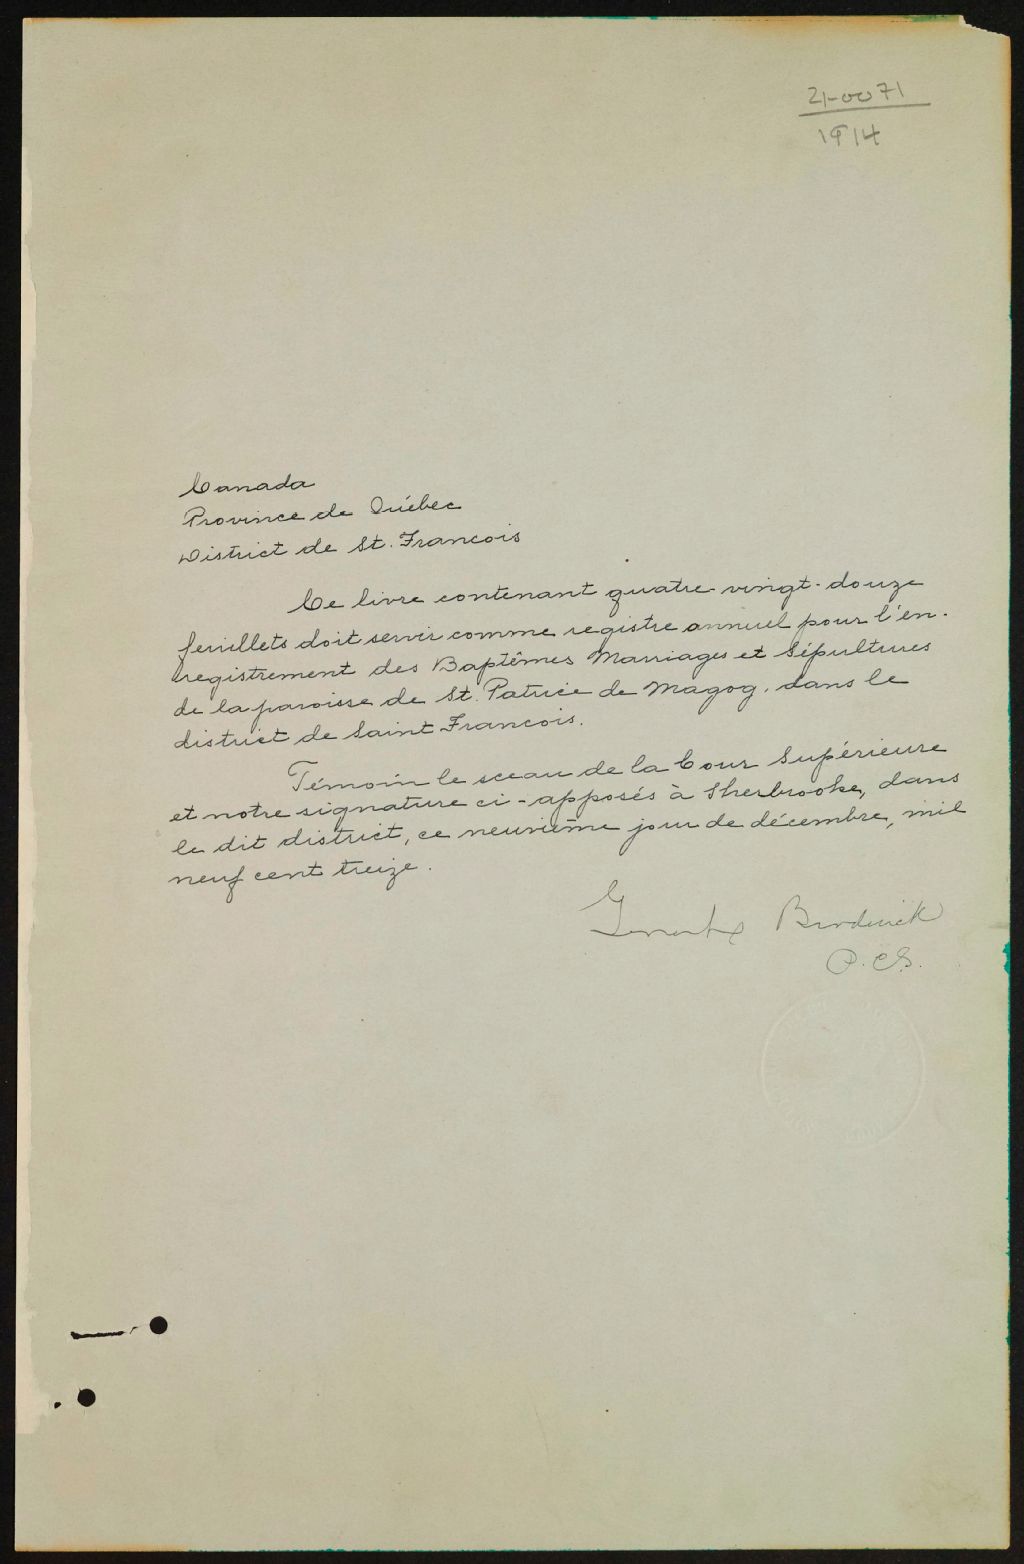 21-0071
1914
Canada
Province de Québec
District de St. Francois
Ce livre contenant quatre-vingt-douze
feuillets doit servir comme registre annuel pour l'en-
registrement des Baptêmes Marriages et Sépultures
de la paroisse de St. Patrice de Magog, dans le
district de Saint Francois.
Témoin le sceau de la Cour Supérieure
et notre signature ci-apposés à Sherbrooke, dans
le dit district, ce neuvième jour de décembre, mil
neuf cent treize.
P.C.S.